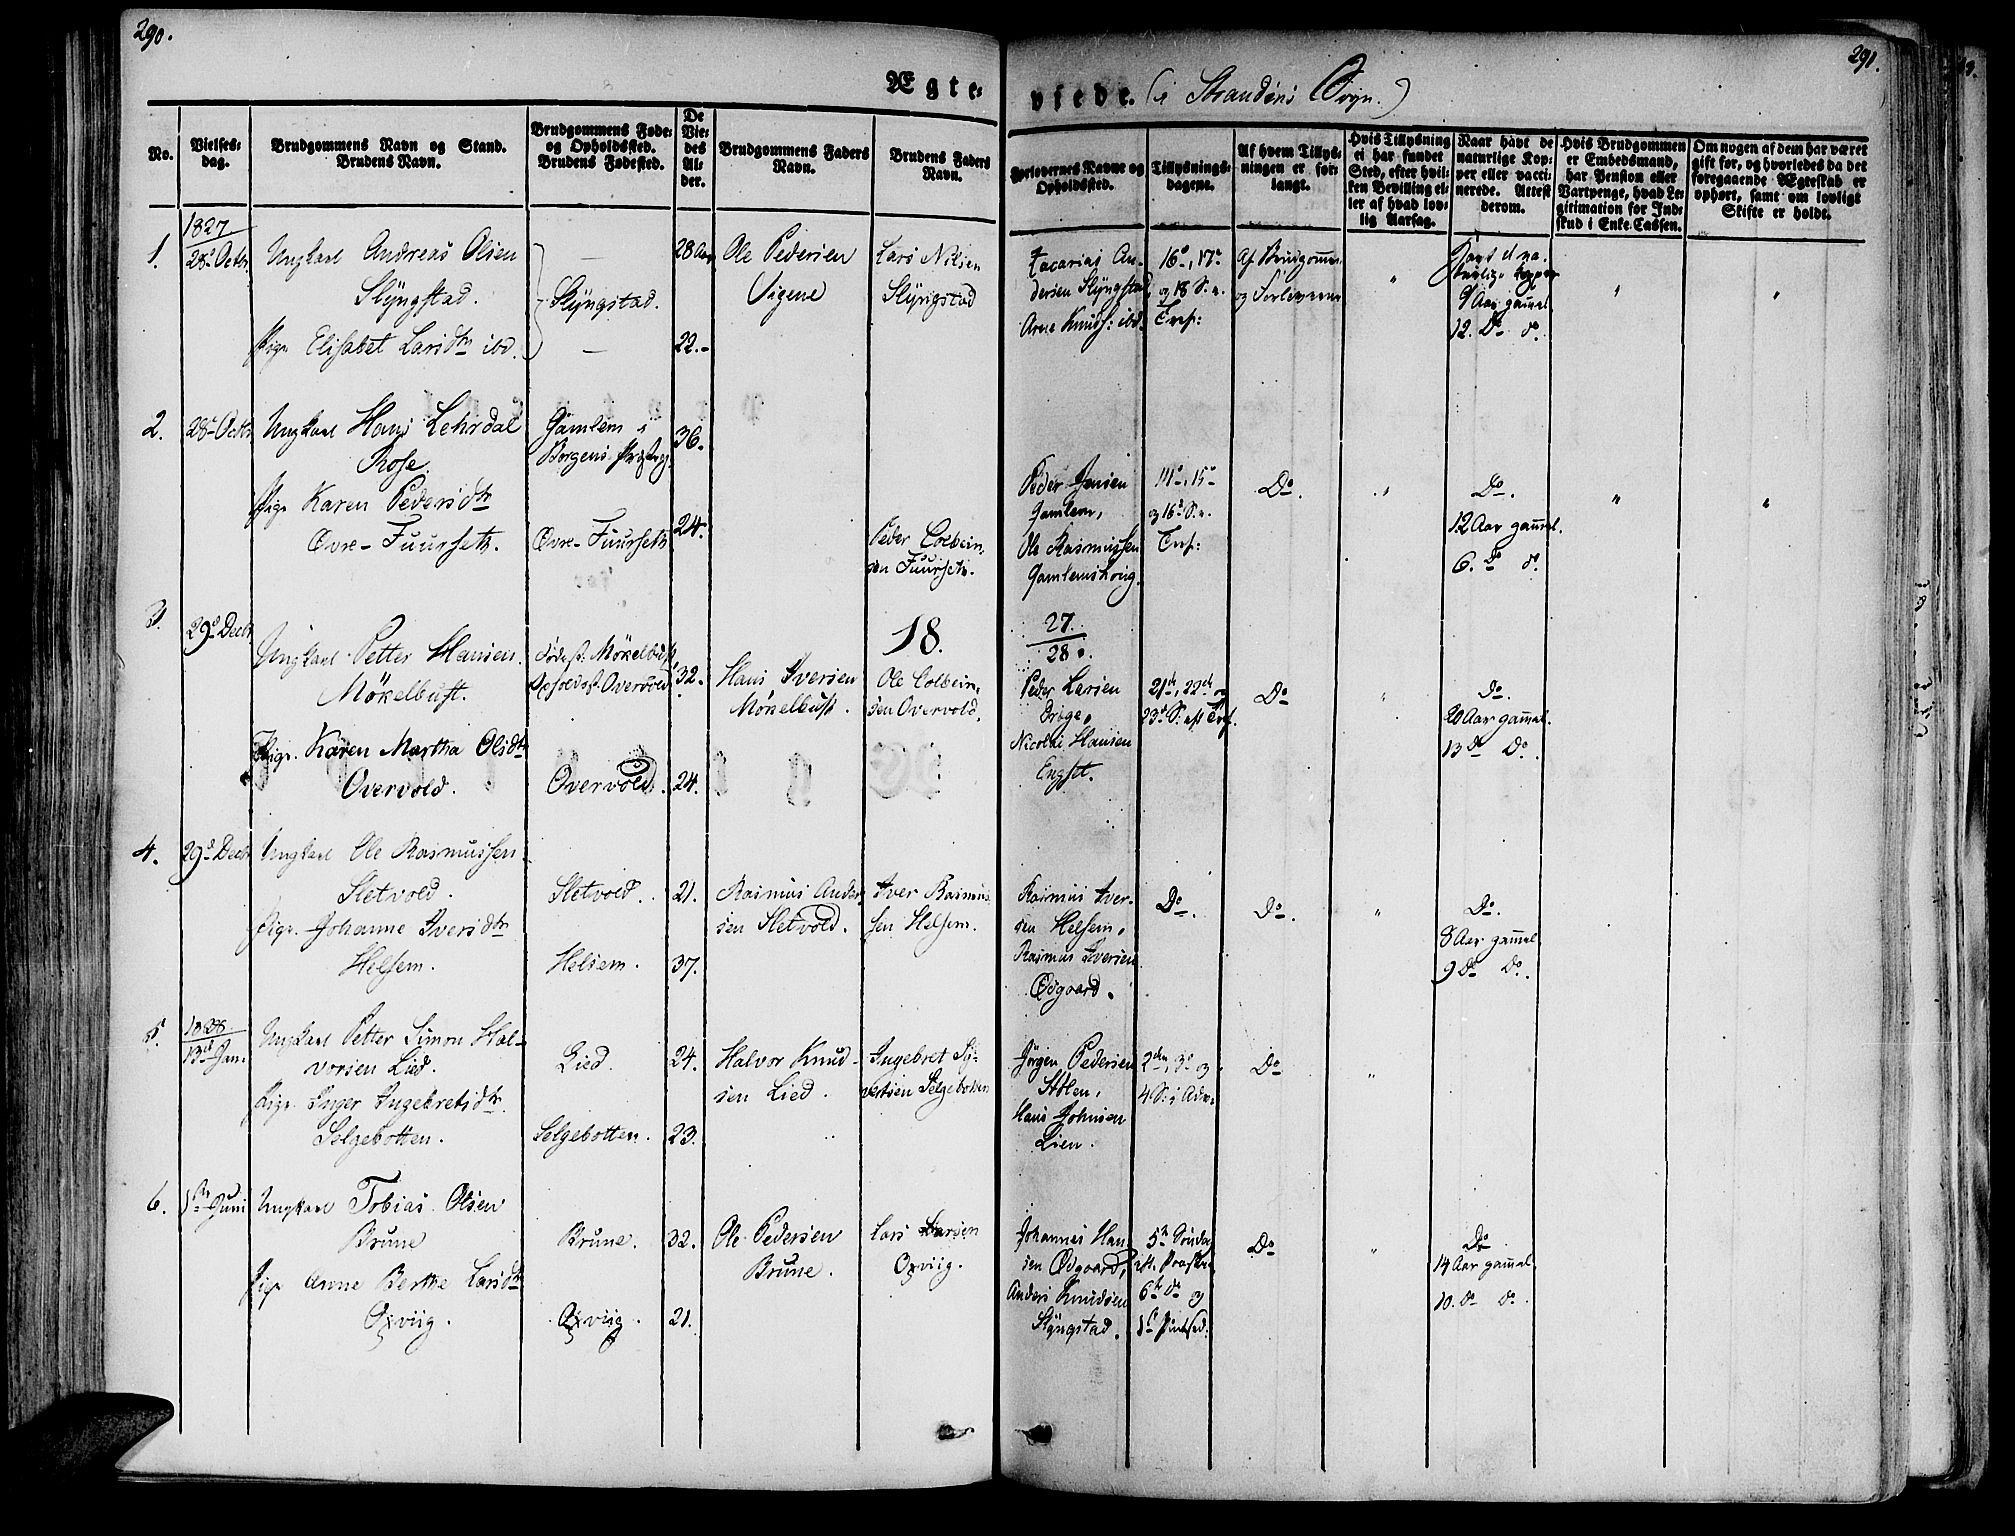 290.
291.
Ægte-
viede. (i Strandens Sogn.)
No.
Vielses-
dag.
Brudgommens Navn og Stand.
Brudens Navn.
Brudgommens Føde-
og Opholdssted.
Brudens Fødested.
De
Vie-
des
Al-
der.
Brudgommens Faders
Navn.
Brudens Faders
Navn.
Forlovernes Navne og
Opholdssted.
Tillysnings-
dagene.
Af hvem Tillys-
ningen er for-
langt.
Hvis Tillysning
ei har fundet
Sted, efter hvil-
ken Bevilling el-
ler af hvad lov-
lig Aarsag.
Naar havt de
naturlige Kop-
per eller vacci-
nerede. Attest
derom.
Hvis Brudgommen
er Embedsmand,
har Pension eller
Vartpenge, hvad Le-
gitimation for Ind-
skud i Enke-Cassen.
Om nogen af dem har været
gift før, og hvorledes da det
foregaaende Ægteskab er
ophørt, samt om lovligt
Skifte er holdt.
1827
1.
28de Octbr
Ungkarl Andreas Olsen
Slyngstad.
Pige Elisabet Larsdtr ibd.
—
Slyngstad.
—
28 Aar
22.-
Ole Pedersen
Vigene
Lars Nilsen
Slyngstad
Zacarias An-
dersen Slyngstad,
Arne Knuds: ibd.
16de, 17de
og 18 S. e.
Tref:
Af Brudgommen
og Forloverne
"
Havt de na-
turlige Kopper
9 Aar gammel
12. Do do.
"
"
2.
28de Octbr
Ungkarl Hans Lehrdal
Rose.
Pige Karen Pedersdtr
Øvre-Fuurseth.
Gamlem i
Borgens Præsteg.
Øvre-Fuurseth
36.
24.
Peder Colbein-
sen Fuurseth.
Peder Jensen
Gamlem,
Ole Rasmussen
Gamlemshoug.
14de, 15de
og 16de S. e.
Tref:
Do.
"
Do.
12 Aar gammel.
6. Do do.
"
"
3.
29de Decbr
Ungkarl Petter Hansen
Mökelbust.
Pige Karen Martha Olsdtr
Overvold.
Födest: Mökelbust,
Opholdst. Overvold
Overvold.
32.
24.
Hans Iversen
Mökelbust.
18.
Ole Colbein-
sen Overvold.
27.
28.
Peder Larsen
Nicolai Hansen
Engset.
21de, 22de og
23de S: eft Tref.
Do
"
Do.
20 Aar gammel.
13 Do Do.
4.
29de Decbr
Ungkarl Ole Rasmussen
Sletvold.
Pige Johanne Iversdtr
Helsem.
Sletvold.
Helsem.
21.
37.
Rasmus Ander-
sen Sletvold.
Iver Rasmus-
sen Helsem.
Rasmus Iver-
sen Helsem,
Rasmus Iversen
Ödgaard.
Do.
Do.
"
Do.
8 Aar gammel
9 Do Do.
5.
1828
13de Jan.
Ungkarl Petter Simon Hal-
vorsen Lied.
Pige Inger Ingebretsdtr
Selgebotten.
Lied.
Selgebotten.
24.
23.
Halvor Knud-
sen Lied.
Ingebret Sy-
vertsen Selgebotten
Jörgen Pedersen
Stölen,
Hans Johnsen
Lien.
2den, 3de og
4 S: i Adv.
Do
"
6.
1ste Juni
Ungkarl Tobias Olsen
Brune
Pige Anne Berthe Larsdtr
Oxviig.
Brune.
Oxviig.
32.
21.
Ole Pedersen
Brune.
Lars Larsen
Oxviig.
Johannes Han-
sen Ödgaard,
Anders Knudsen
Slyngstad.
5te Søndag
eft. Paaske
6te Do og
1ste Pintsed.
Do
"
Do
14 Aar gammel.
10. Do Do.